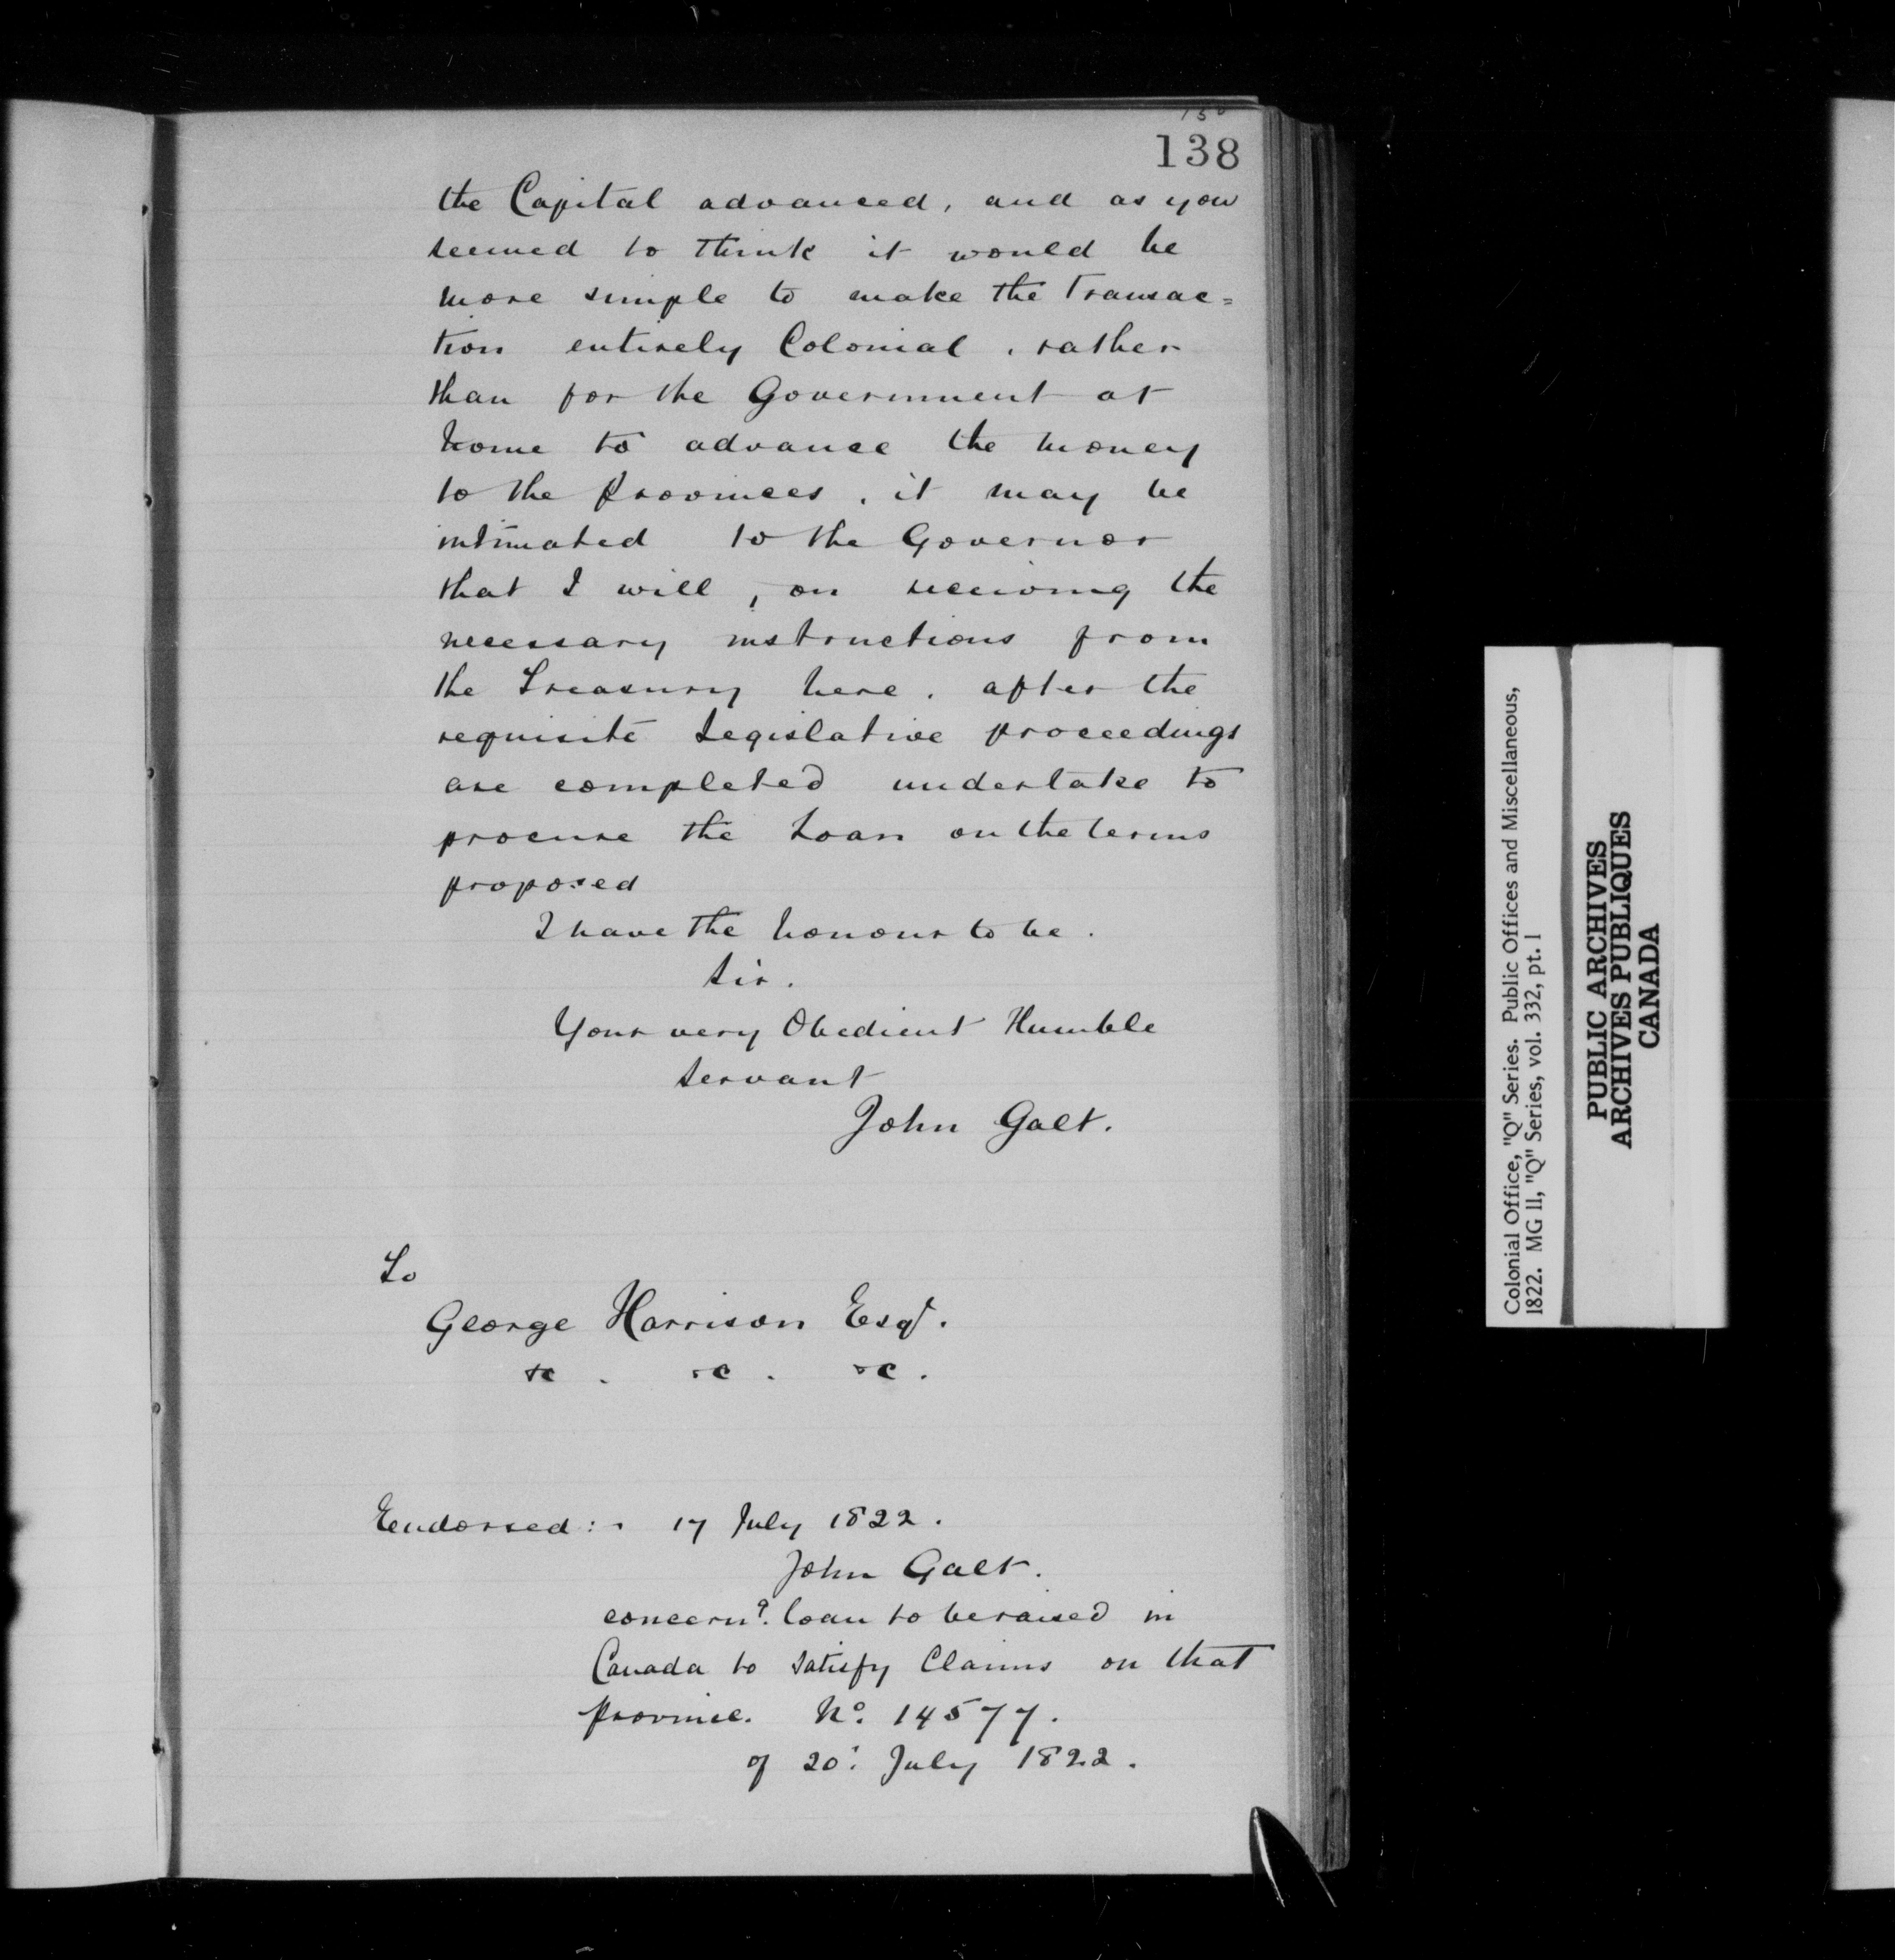 138
the Capital advanced, and as you
seemed to think it would be
more simple to make the Transac=
tion entirely Colonial, rather
than for the Government at
home to advance the money
to the Provinces, it may be
intimated to the Governor
that I will, on receiving the
necessary instructions from
the Treasury here, after the
requisite Legislative proceedings
are completed undertake to
procure the Loan on the terms
proposed
I have the honour to be.
Sir.
Your very Obedient Humble
Servant
John Galt.
To
George Harrison Esqr.
&c. &c. &c.
Endorsed:- 17 July 1822.
John Galt.
concerng. loan to be raised in
Canada to satisfy Claims on that
province. No. 14577.
of 20: July 1822.
Colonial Office, "Q" Series. Public Offices and Miscellaneous,
1822. MG 11, "Q" Series, vol. 332, pt. 1
PUBLIC ARCHIVES
ARCHIVES PUBLIQUES
CANADA